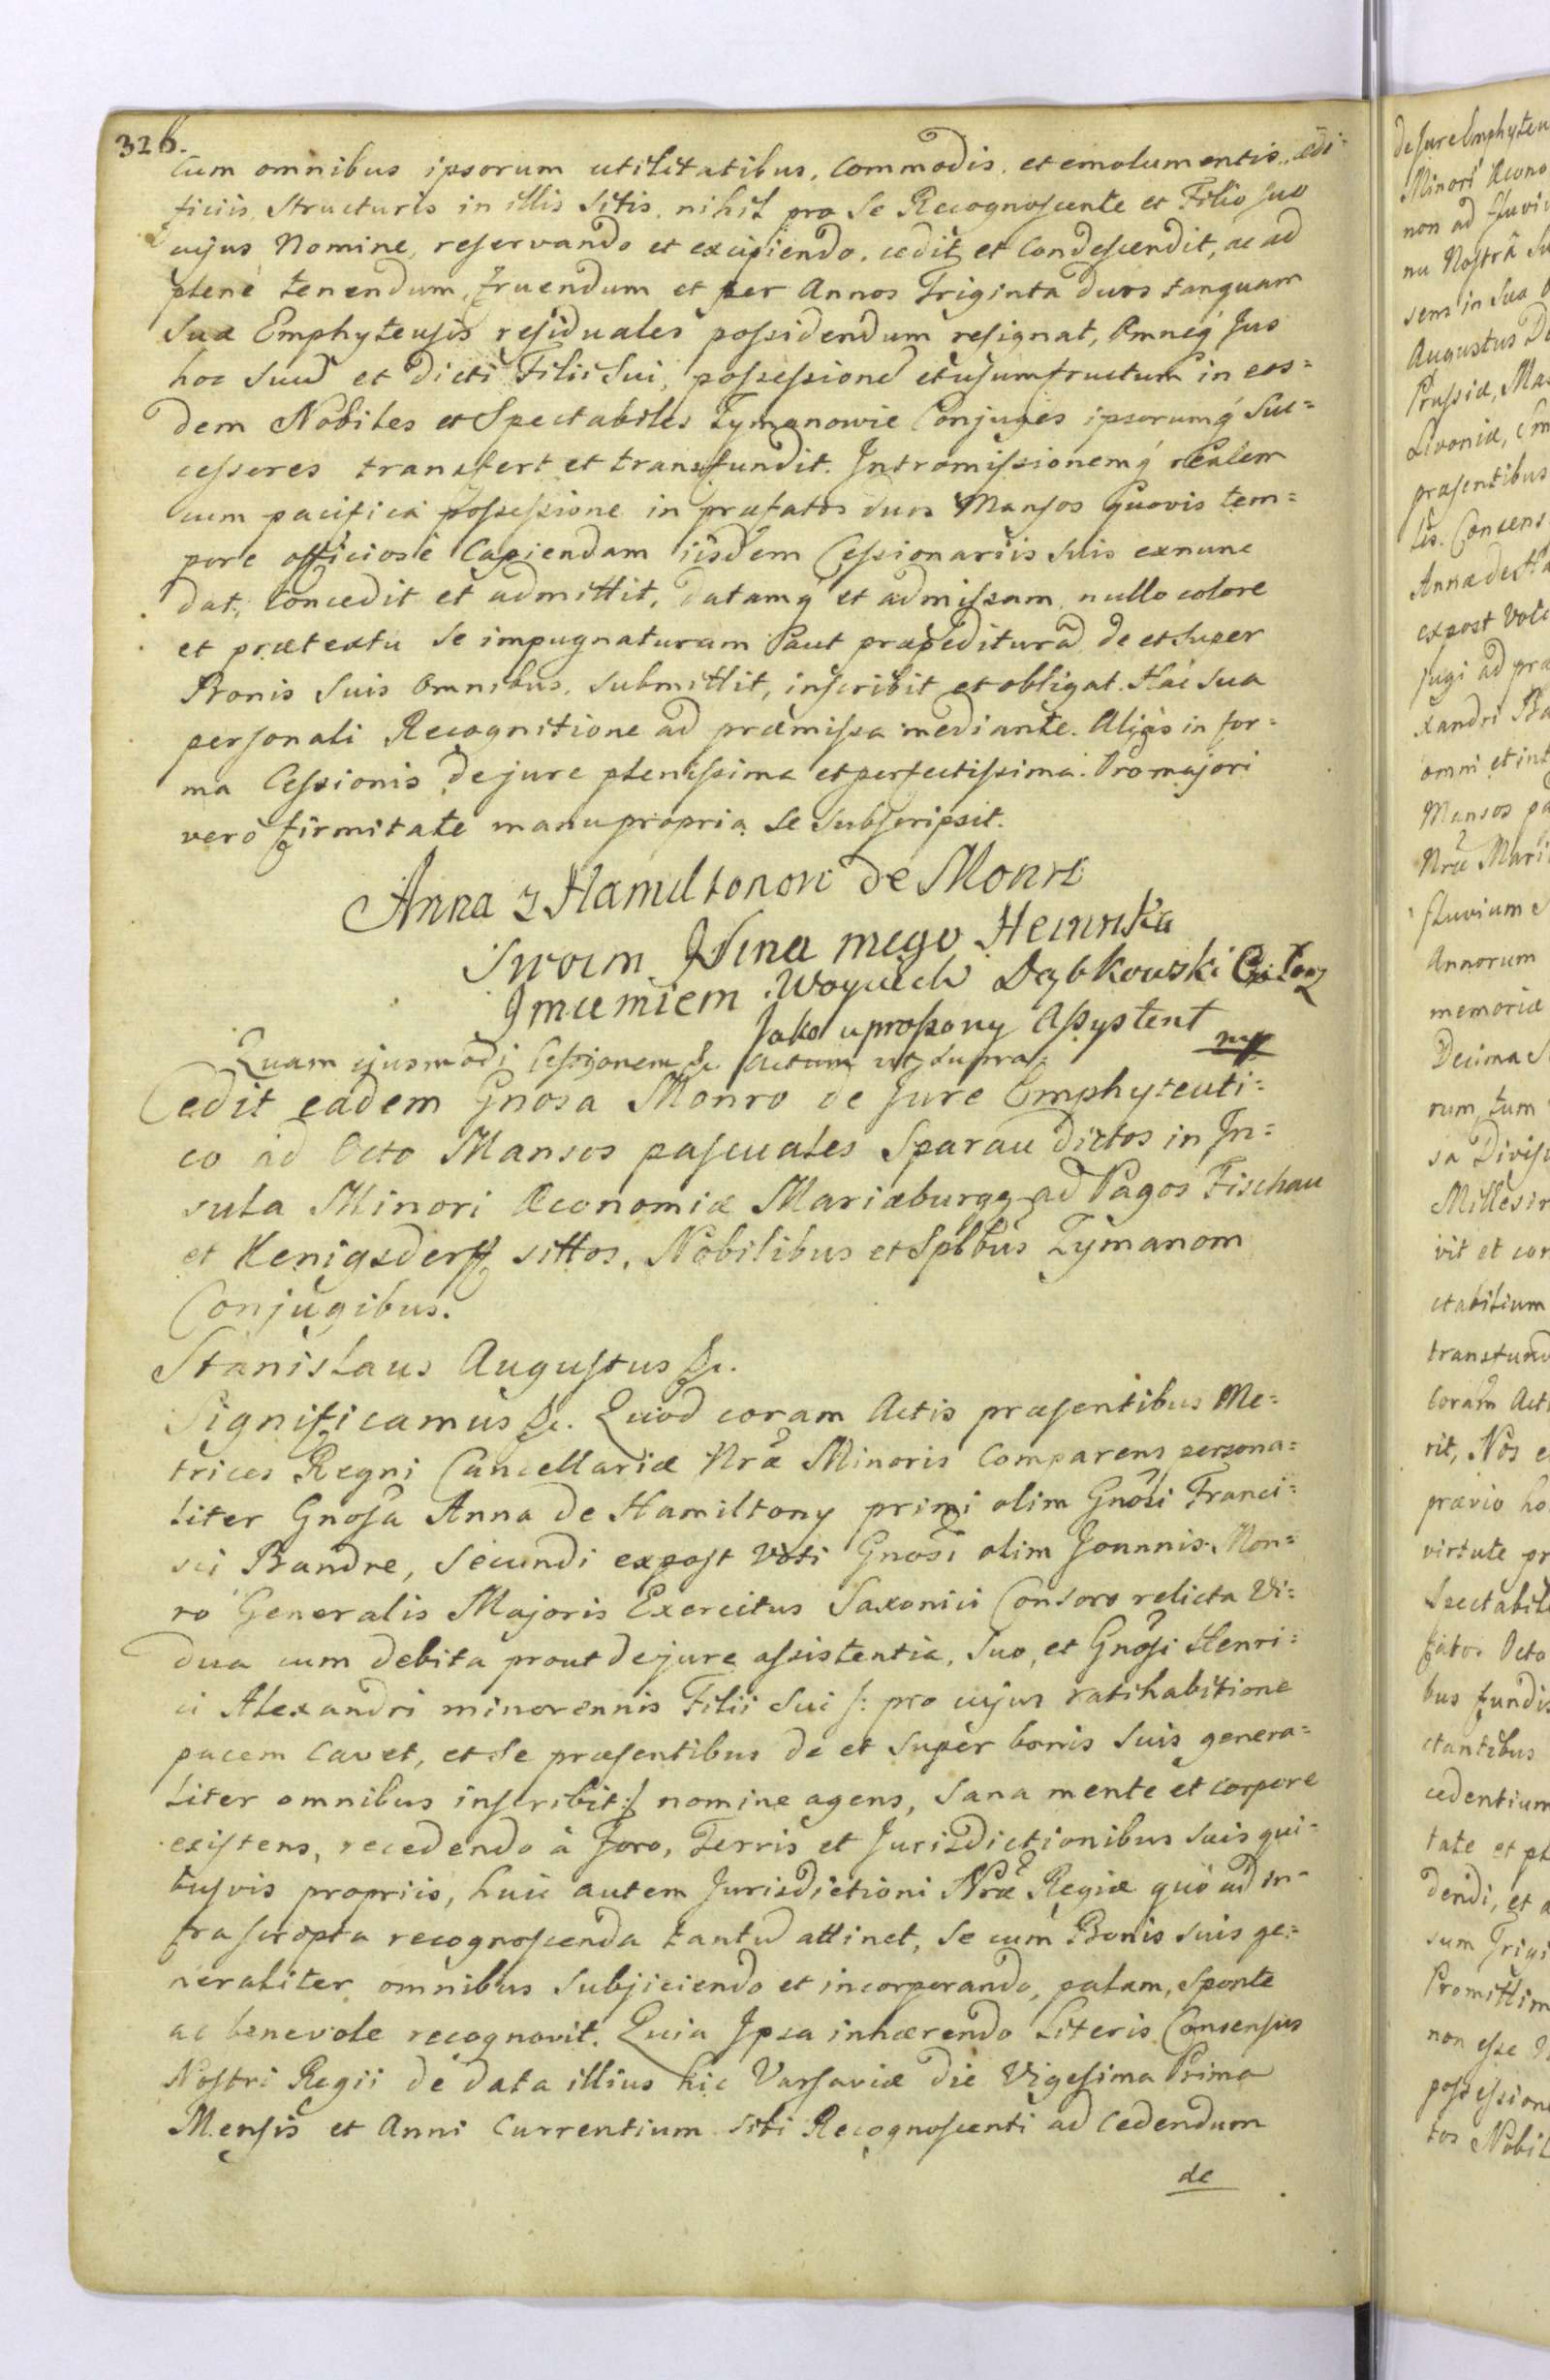 326.
cum omnibus ipsorum utilitatibus, Commodis, et emolumentis, ædi=
ficiis, Structuris in illis Sitis, nihil pro Se Recognoscente et Filio suo
cujus Nomine, reservando et excipiendo, cedit et Condescendit, ac ad
plene tenendum, fruendum et per Annos Triginta duos tanquam
Suæ Emphyteusis residuales possidendum resignat, Omneq́ Jus
hoc Suũ et dicti Filii Sui, possessionẽ et usumfructum in eos=
dem Nobiles et Spectabiles Tymanowie Conjuges ipsorumq́ Suc=
cessores transfert et transfundit. Intromissionemq́ realem
cum pacifica possessione in præfatos duos Mansos Quovis tem=
pore officiose Capiendam iisdem Cessionariis suis exnunc
dat, Concedit et admittit, datamq́ et admissam, nullo colore
et prætextu Se impugnaturam aut præpedituram̃ de et Super
Bonis Suis Omnibus, Submittit, inscribit et obligat. Hac Sua
personali Recognitione ad præmissa mediante. Alias in for=
ma Cessionis de jure plenissima et perfectissima. Pro majori
vero firmitate manu propria Se Subscripsit.
Anna z Hamiltonow de Monro
Swoim. I Sina mego Heinrika
Imieniem Woyciech Dąbkowski
Jako uproszony Assystent
mp
Quam ejusmodi Cessionem &c Actum ut Supra.
Cedit eadem Gnosa Monro de Jure Emphyteuti=
co ad Octo Mansos pascuales Sparau dictos in In=
sula Minori Œconomiæ Mariæburgg ad Pagos Fischau
et Kenigsderff sittos, Nobilibus et Splbus Tymanom
Conjugibus.
Stanislaus Augustus &c.
Significamus &c. Quod coram Actis præsentibus Me=
trices Regni Cancellariæ Nræ Minoris Comparens persona=
liter Gnosa Anna de Hamiltony primi olim Gnosi Franci=
sci Bandre, Secundi expost Voti Gnosi olim Joannis Mon=
ro Generalis Majoris Exercitus Saxonici Consors relicta Vi=
dua cum debita prout de jure assistentia, Suo, et Gnosi Henri=
ci Alexandri minorennis Filii Sui /: pro cujus ratihabitione
pacem Cavet, et Se præsentibus de et Super bonis Suis genera=
liter omnibus inscribit :/ nomine agens, Sana mente et corpore
existens, recedendo à Foro, Terris et Jurisdictionibus Suis qui=
busvis propriis, huic autem Jurisdictioni Nræ Regiæ quo ad in=
frascripta recognoscenda tantũ attinet, Se cum Bonis Suis ge=
neraliter omnibus Subjiciendo et incorporando, palam, Sponte
ac benevole recognovit. Quia Ipsa inhærendo Literis Consensus
Nostri Regii de data illius hic Varsaviæ die Vigesima Prima
Mensis et Anni Currentium Sibi Recognoscenti ad Cedendum
de
de Jure Emphyteu
Minori Œcono
non ad fluvi
Augustus De
Prussiæ, Ma
Livoniæ,
præsentibus
tis. Consens
Annæ de Ha
expost Voti
jugi ad præ
xandri Ba
omni et int
Mansos pa
Nræ Mari
fluvium
Annorum
memoriæ
Decima
rum, tum
sa Divis
Millesi
vit et cor
ctabilium
transfund
Coram Act
rit, Nos e
prævio ho
virtute pr
Spectabil
fatos Octo
bus fundis
ctantibus
cedentium
tate et pl
dendi, et a
sum Trigi
Promittim
non esse
possession
tos Nobil